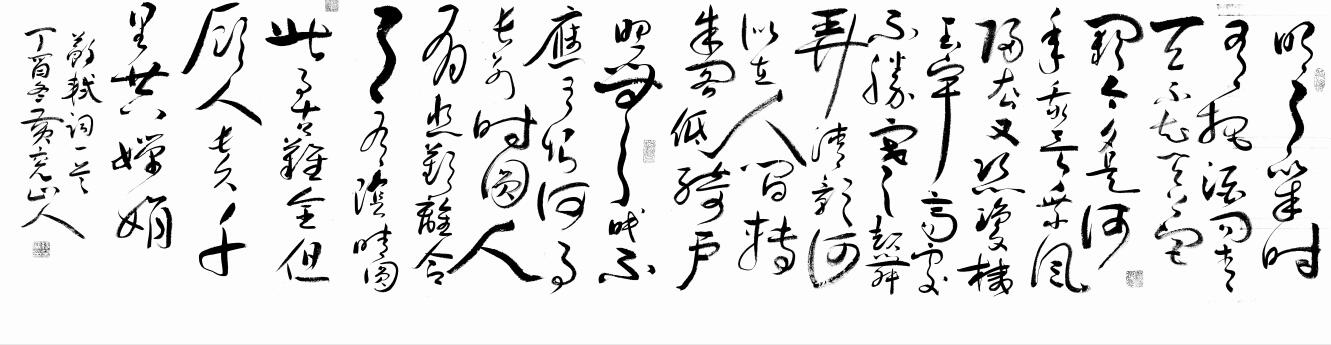 明月幾时
有把酒问青
天不知天上宫
阙今夕是何
年我欲乘风
归去又恐瓊楼
玉宇高处
不勝寒起舞
弄清影何
似在人间轉
朱阁低绮户
照無眠不
應有恨何事
长别时圆人
有悲歡離合
月有陰晴圆
此事古難全但
願人长久千
里共嬋娟
蘇軾词一首
丁酉冬黄克山人